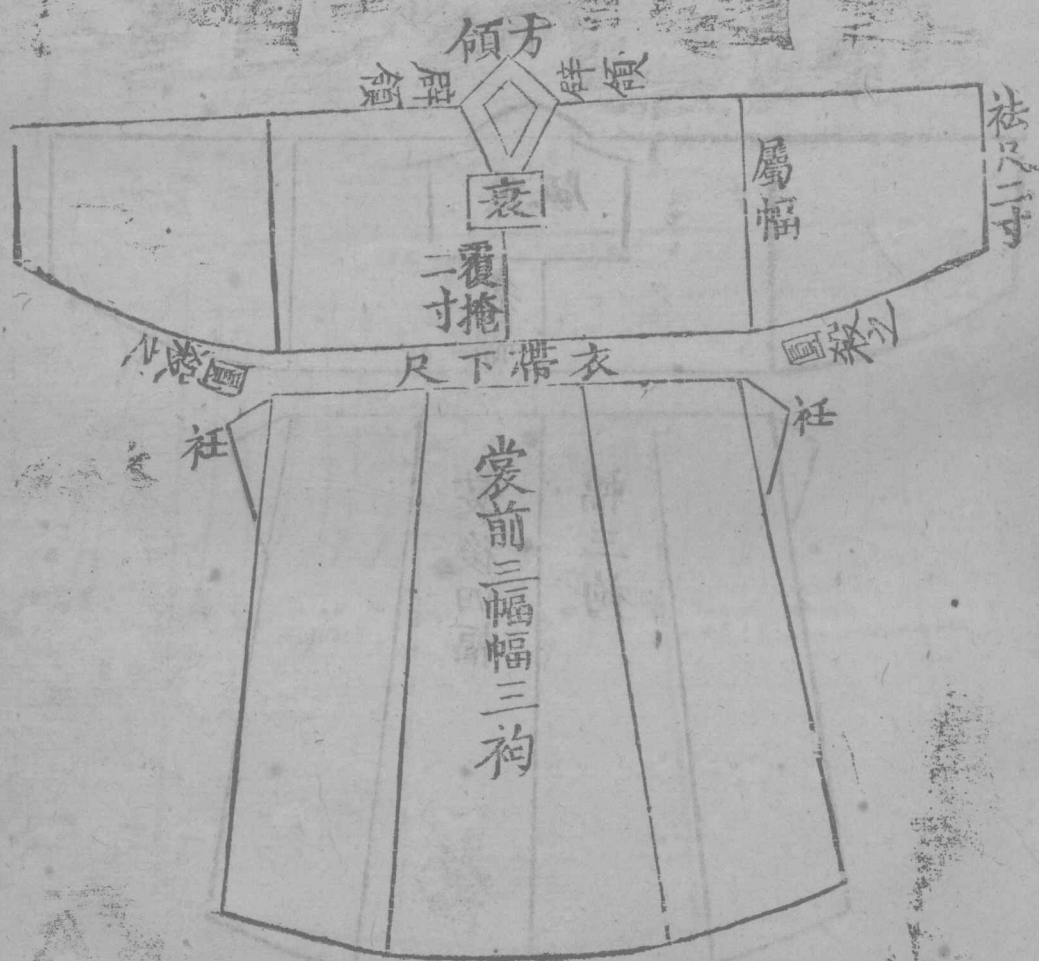 方領
辟領
辟領
袪尺二寸
屬幅
衰
覆掩
二寸
圓殺之
圓殺之
衣帶下尺
衽
衽
裳前三幅幅三袧